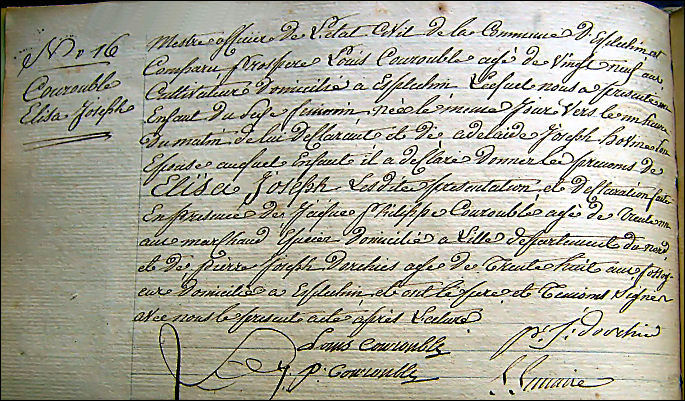 N° 16
Couroublé
Elisa Joseph
Mestre officier de L'etat Civil de la Commune D'Esplechin est
Comparu Prospere Louis Couroublé agé de vingt neuf ans
Cultivateur Domicilié a Esplechin Lequel nous a presenté un
Enfant du sexe feminin née le meme Jour vers le
Du matin de lui Desclarant et de adelaïde Joseph son
Epouse auquel Enfant il a desclaré Donner les prenoms de
Elisa Joseph Les dites presentation et desclaration faite
En presence de Jacque Philippe Couroublé agé de Trente un
ans marchand Epicier domicilié a Lille departement du nord,
et de pierre Joseph Dorchies agé de Trente huit ans
eur Domicilié a Esplechin et ont le pere et Temoins signer
avec nous le present acte après Lecture
Louis Couroublé
p. j. dorchie
P. Couroublé